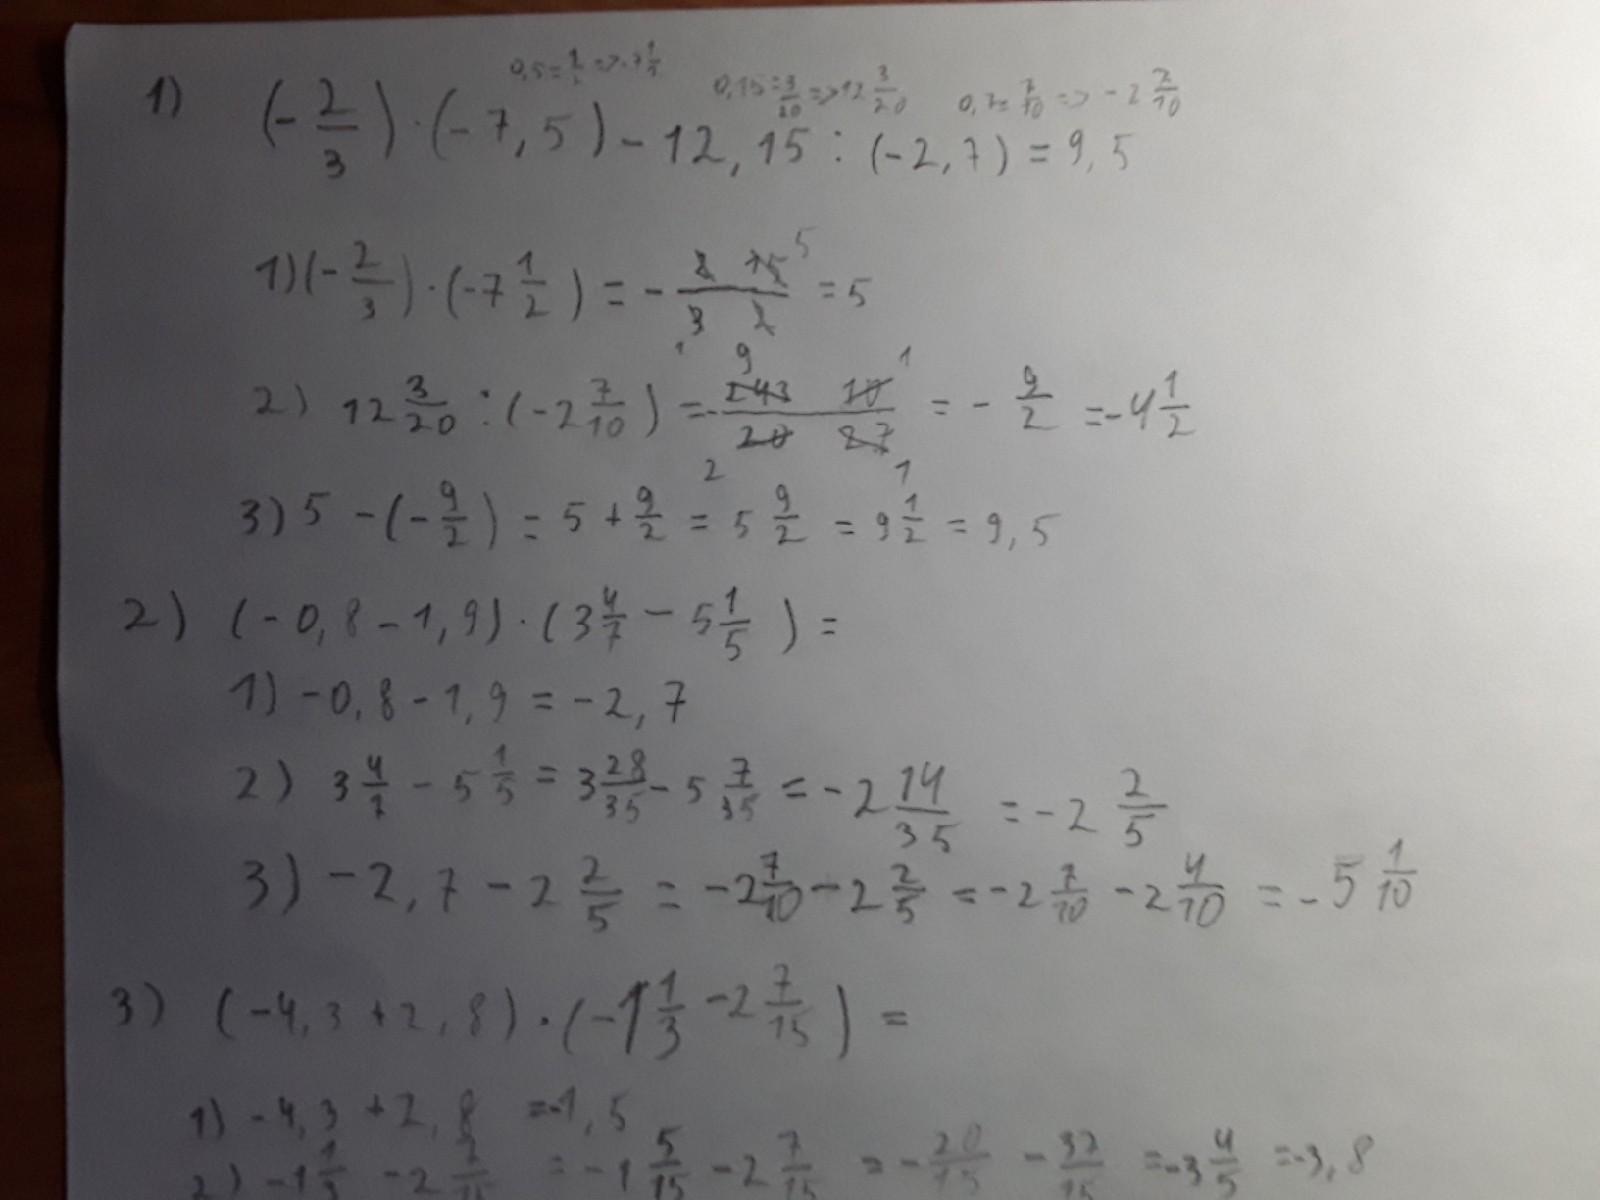 0,5 = 1/2 => -7 1/2   0,15 = 3/20 => 12 3/20   0,7 = 7/10 => -2 7/10
1) (-2/3) · (-7,5) - 12,15 : (-2,7) = 9,5
1) (-2/3) · (-7 1/2) = - (2 15 5)/(3 2 1) = 5
2) 12 3/20 : (-2 7/10) = - (243 9 10 1)/(20 2 27 1) = - 9/2 = -4 1/2
3) 5 - (-9/2) = 5 + 9/2 = 5 9/2 = 9 1/2 = 9,5
2) (-0,8 - 1,9) · (3 4/7 - 5 1/5) =
1) -0,8 - 1,9 = -2,7
2) 3 4/7 - 5 1/5 = 3 28/35 - 5 7/35 = -2 14/35 = -2 2/5
3) -2,7 - 2 2/5 = -2 7/10 - 2 2/5 = -2 7/10 - 2 4/10 = -5 1/10
3) (-4,3 + 2,8) · (-1 1/3 - 2 7/15) =
1) -4,3 + 2,8 = -1,5
2) -1 1/3 - 2 7/15 = -1 5/15 - 2 7/15 = - 20/15 - 37/15 = -3 4/5 = -3,8